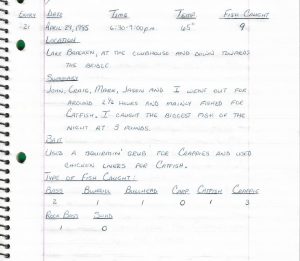 Entry Date Time Temp Fish Caught
21 April 29, 1985 6:30-9:00 p.m. 65° 9
Location
Lake Bracken, at the clubhouse and down towards
the bridge
Summary
John, Craig, Mark, Jason and I went out for
around 2½ hours and mainly fished for
catfish. I caught the biggest fish of the
night at 3 pounds.
Bait
Used a squirmin' grub for crappies and used
chicken livers for catfish.
Type of Fish Caught:
Bass Bluegill Bullhead Carp Catfish Crappie
2 1 1 0 1 3
Rock Bass Sund
1 0